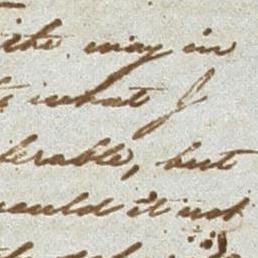 the way in
what I
derable, but
would it not